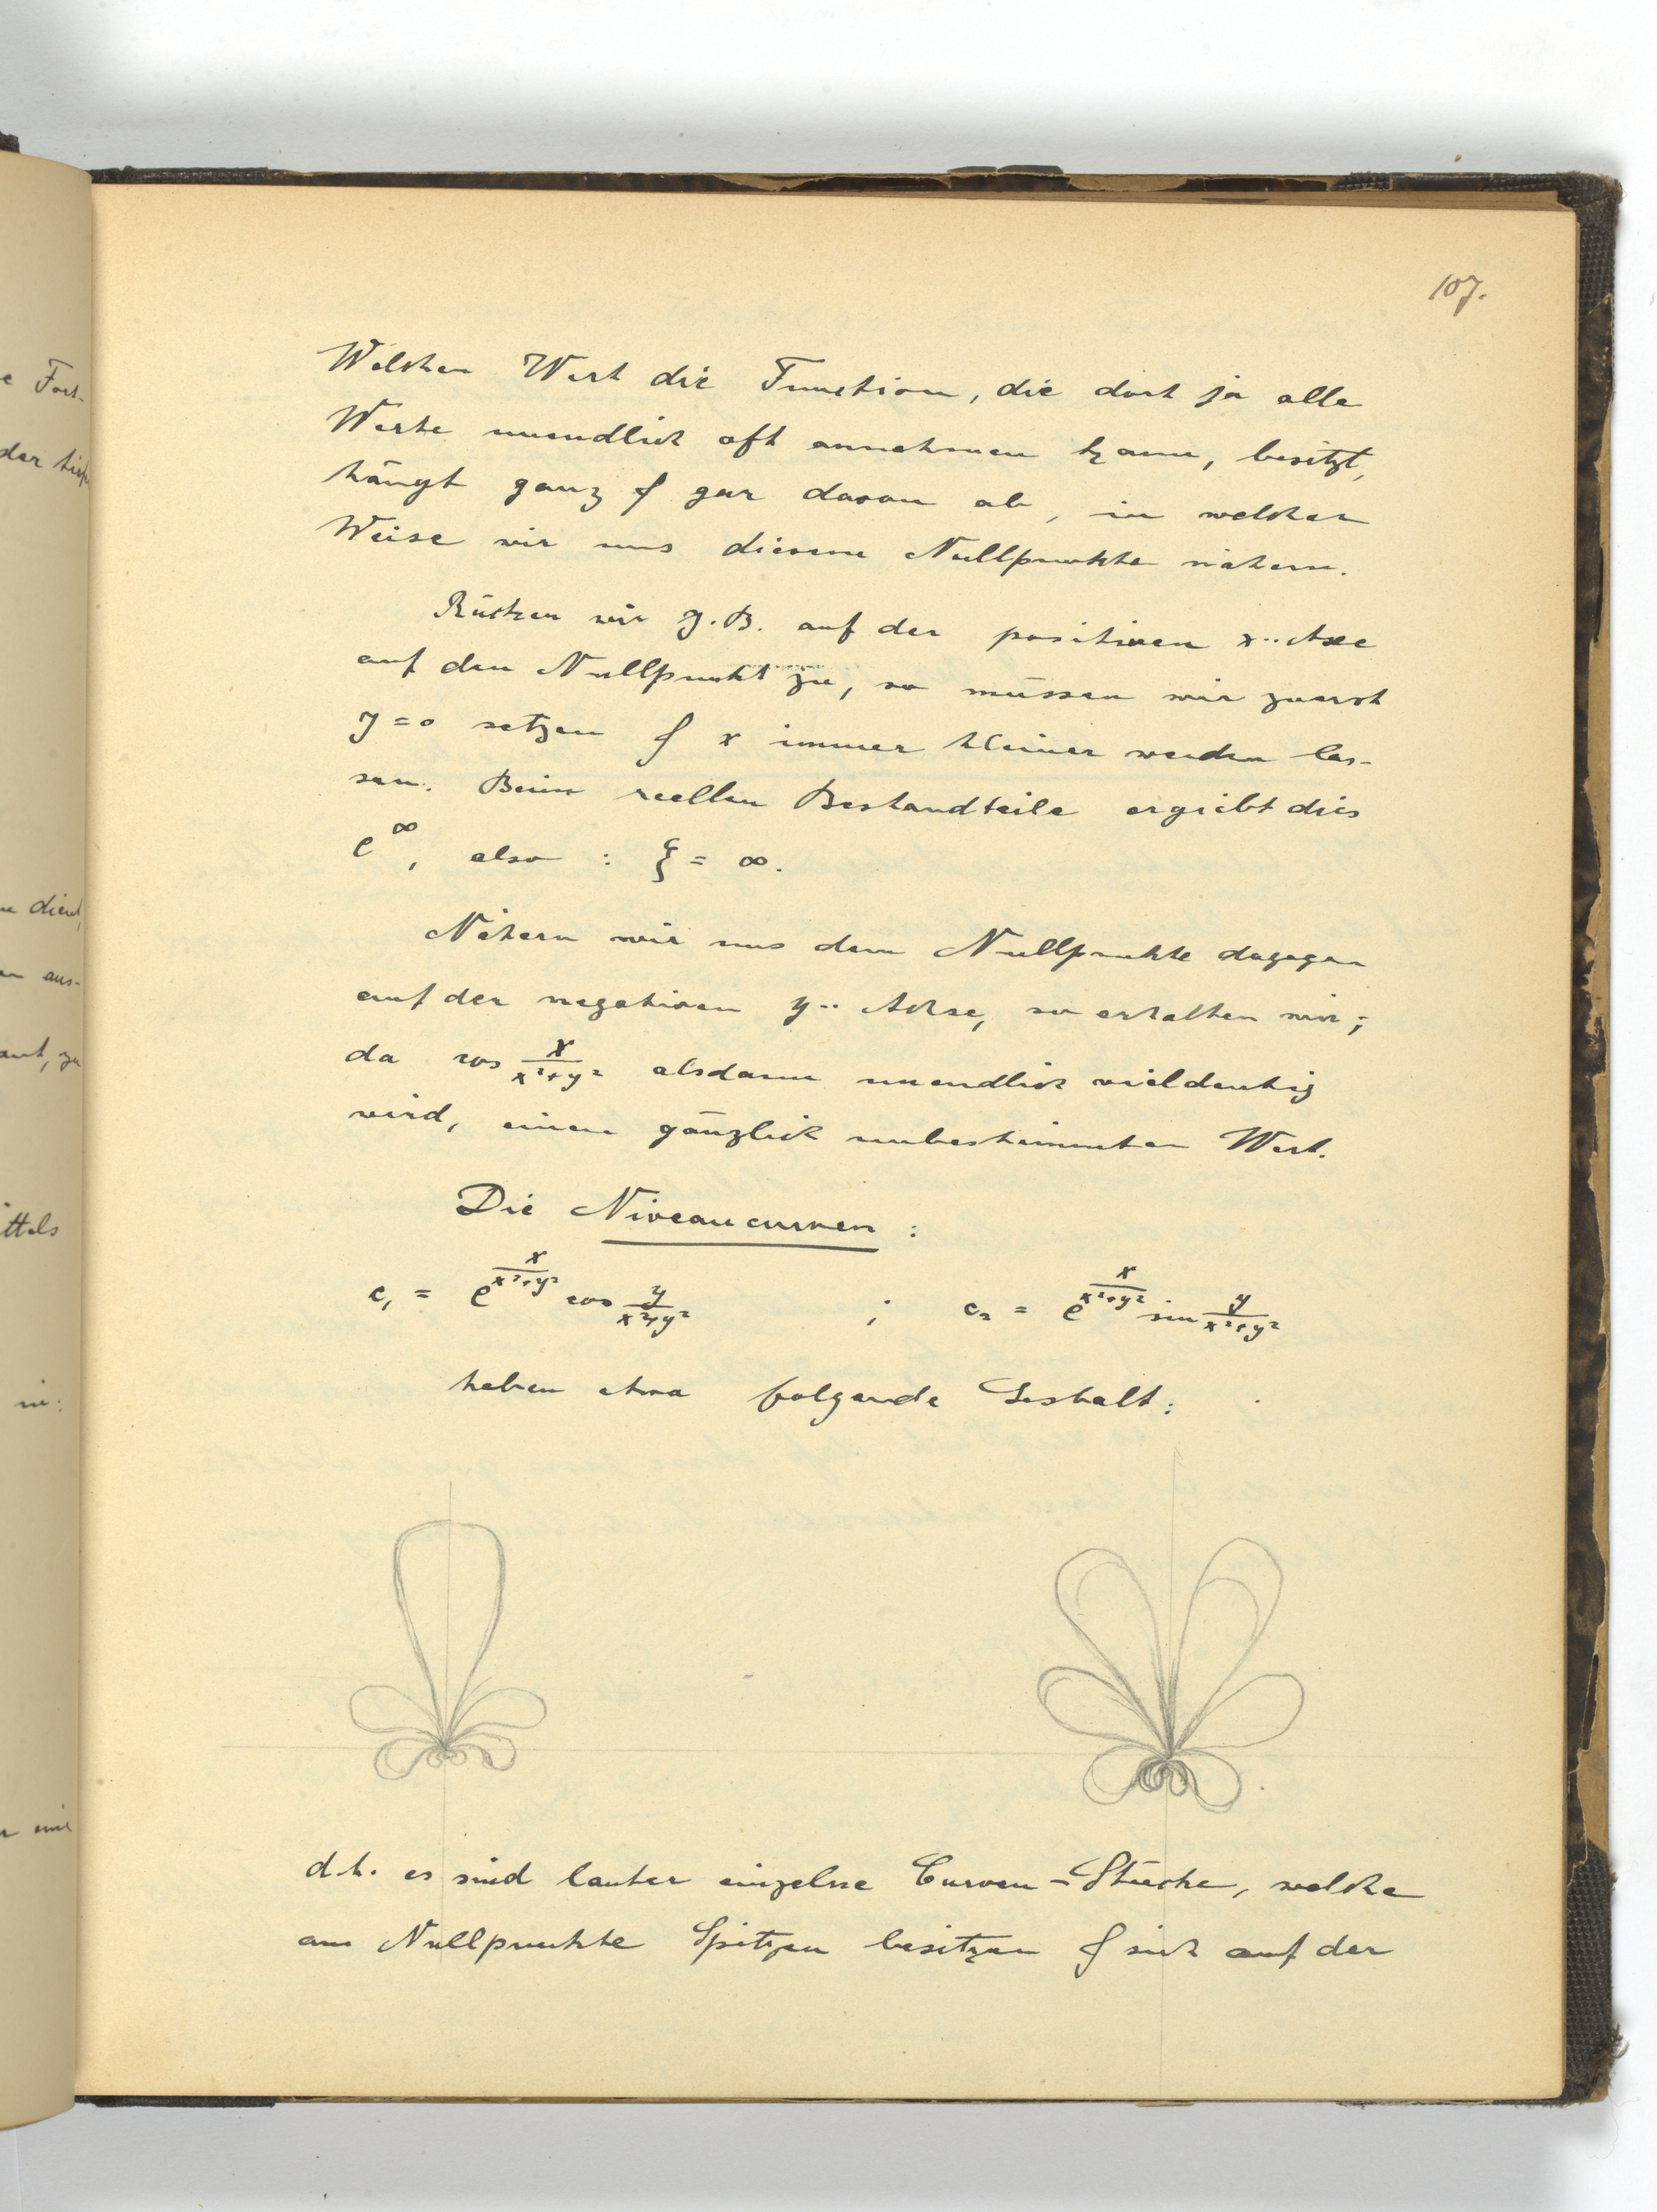 107.
Welchen Wert die Function, die dort ja alle
Werte unendlich oft annehmen kann, besitzt,
hängt ganz & gar davon ab, in welcher
Weise wir uns diesem Nullpunkte nähern.
Rücken wir z.B. auf der positiven x-Axe
auf den Nullpunkt zu, so müssen wir zuerst
y=0 setzen & x immer kleiner werden las-
sen. Beim reellen Bestandteile ergiebt dies
e^∞, also : ξ = ∞.
Nähern wir uns dem Nullpunkte dagegen
auf der negativen y-Achse, so erhalten wir,
da cos x/(x²+y²) alsdann unendlich vieldeutig
wird, einen gänzlich unbestimmten Wert.
Die Niveaucurven :
c₁ = e^(x/(x²+y²)) cos y/(x²+y²) ; c₂ = e^(x/(x²+y²)) sin y/(x²+y²)
haben etwa folgende Gestalt:
d.h. es sind lauter einzelne Curven-Stücke, welche
am Nullpunkte Spitzen besitzen & sich auf der
e Fort-
der
dient,
aus-
zu
ittels